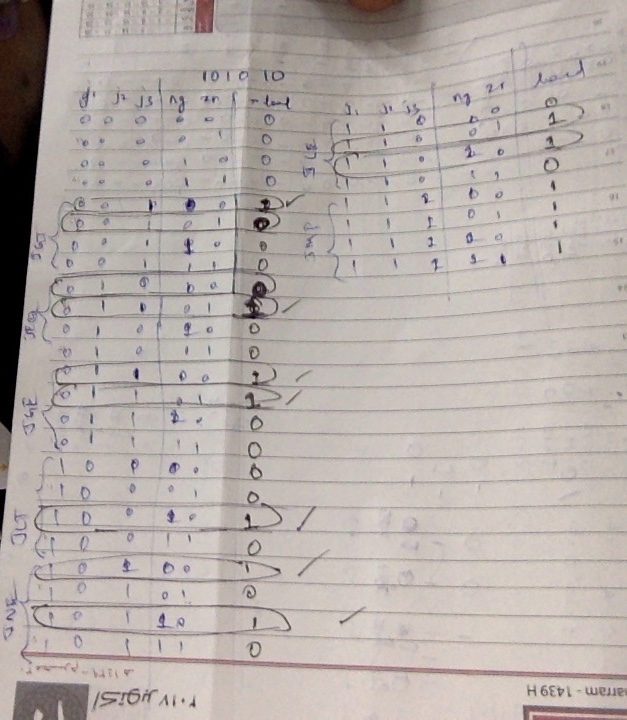 1010 10
j1 j2 j3 ng zr load
0 0 0 0 0 0
0 0 0 0 1 0
0 0 0 1 0 0
0 0 0 1 1 0
JGT
0 0 1 0 0 1
0 0 1 0 1 0
0 0 1 1 0 0
0 0 1 1 1 0
JEQ
0 1 0 0 0 0
0 1 0 0 1
0 1 0 1 0 0
0 1 0 1 1 0
JGE
0 1 1 0 0 1
0 1 1 0 1 1
0 1 1 1 0 0
0 1 1 1 1 0
JLT
1 0 0 0 0 0
1 0 0 0 1 0
1 0 0 1 0 1
1 0 0 1 1 0
JNE
1 0 1 0 0 1
1 0 1 0 1 0
1 0 1 1 0 1
1 0 1 1 1 0
j1 j2 j3 ng zr load
1 1 0 0 0 0
1 1 0 0 1 1
1 1 0 1 0 1
1 1 0 1 1 0
JMP
1 1 1 0 0 1
1 1 1 0 1 1
1 1 1 1 0 1
1 1 1 1 1 1
arram - 1439 H